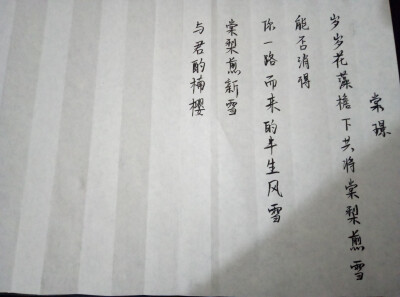 棠璟
岁岁花藻檐下共将棠梨煎雪
能否消得
你一路而来的半生风雪
棠梨煎新雪
与君酌楠樱